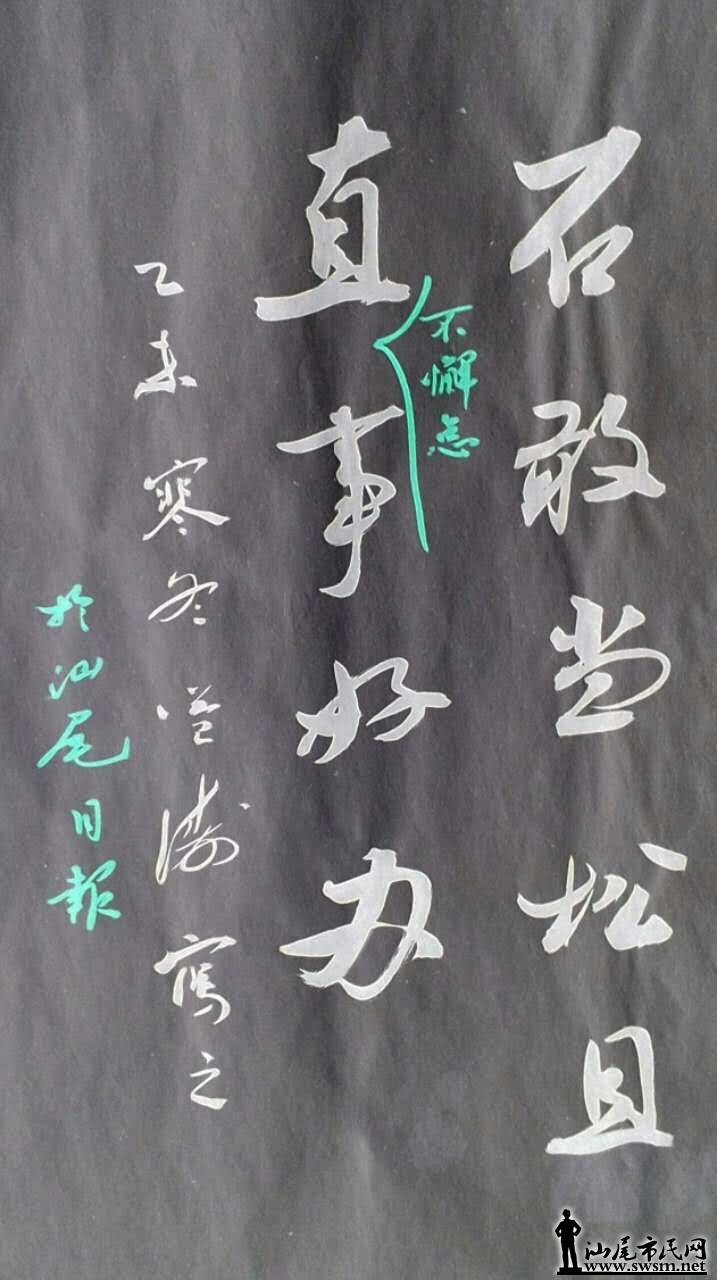 石敢当松且
直事好办
不懈怠
乙未寒冬 涛写之
於汕尾日報
汕尾市民网
www.swsm.net